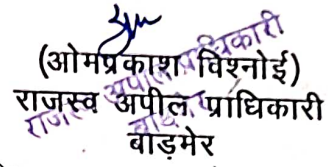 (ओमप्रकाश विश्नोई)
राजस्व अपील प्राधिकारी
बाड़मेर
राजस्व अपील प्राधिकारी